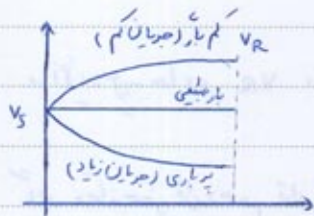 کم بار (جریان کم)
V_R
بار طبیعی
V_S
پر باری (جریان زیاد)